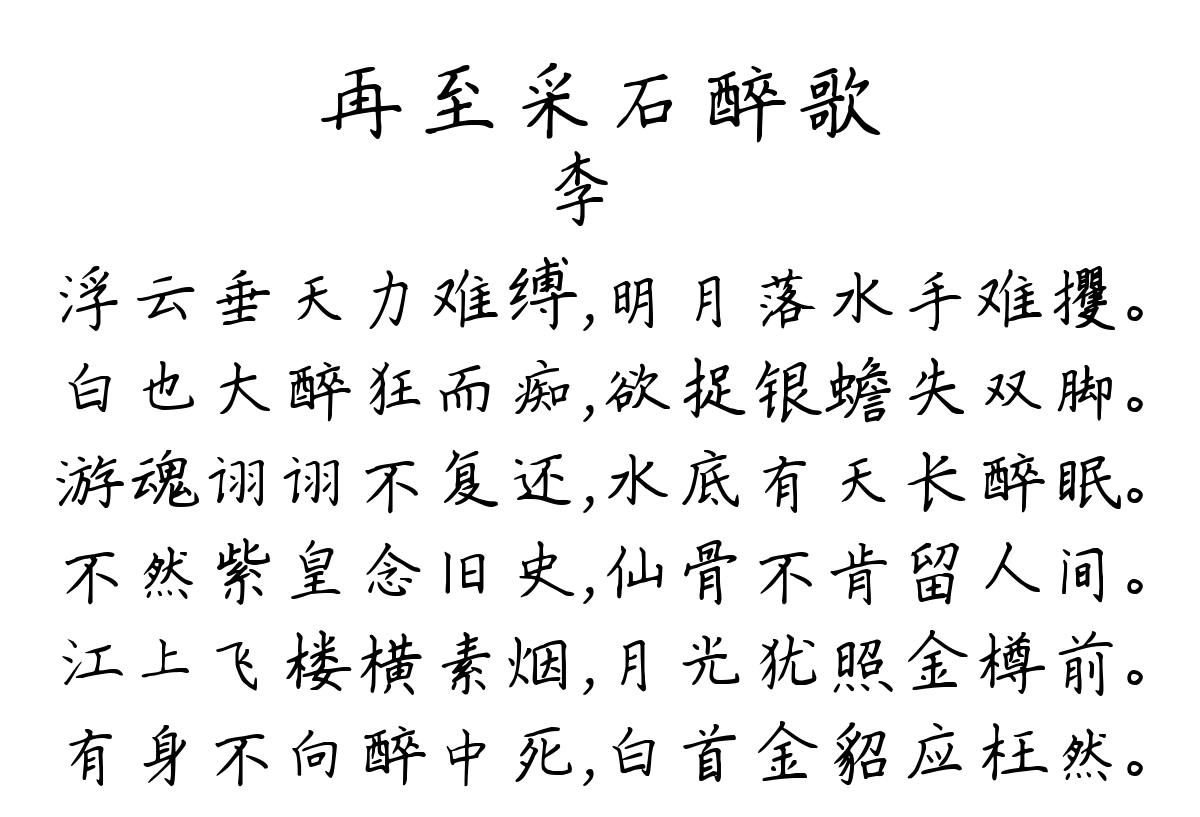 再至采石醉歌
李
浮云垂天力难缚,明月落水手难攫。
白也大醉狂而痴,欲捉银蟾失双脚。
游魂诩诩不复还,水底有天长醉眠。
不然紫皇念旧史,仙骨不肯留人间。
江上飞楼横素烟,月光犹照金樽前。
有身不向醉中死,白首金貂应枉然。